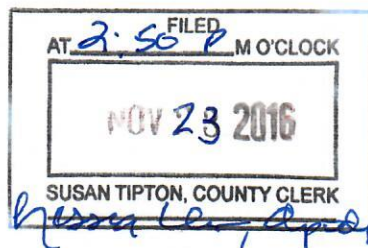 FILED
AT 2:50 P M O'CLOCK
NOV 23 2016
SUSAN TIPTON, COUNTY CLERK